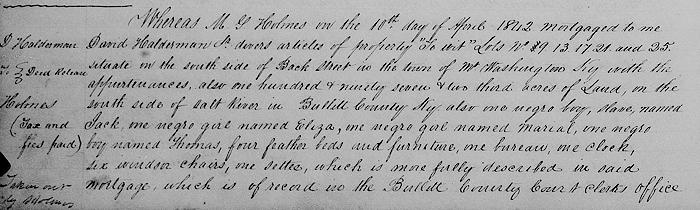 Whereas M G Holmes on the 10th day of April 1842 mortgaged to me
D Halderman
David Halderman Sr divers articles of property "To wit" Lots No 89 13. 17. 21. and 25
To } Deed Release
situate on the south side of Back Street in the town of Mt Washington Ky with the
appurtenances, also one hundred & ninety seven & two third acres of Land, on the
Holmes
south side of Salt River in Bullitt County Ky also one negro boy, slave, named
(Tax and
Jack, one negro girl named Eliza, one negro girl named Maria, one negro
fees paid)
boy named Thomas, four feather beds and furniture, one bureau, one clock,
six windsor chairs, one settee, which is more fully described in said
Taken out
mortgage, which is of record in the Bullitt County Court clerks office
by Holmes